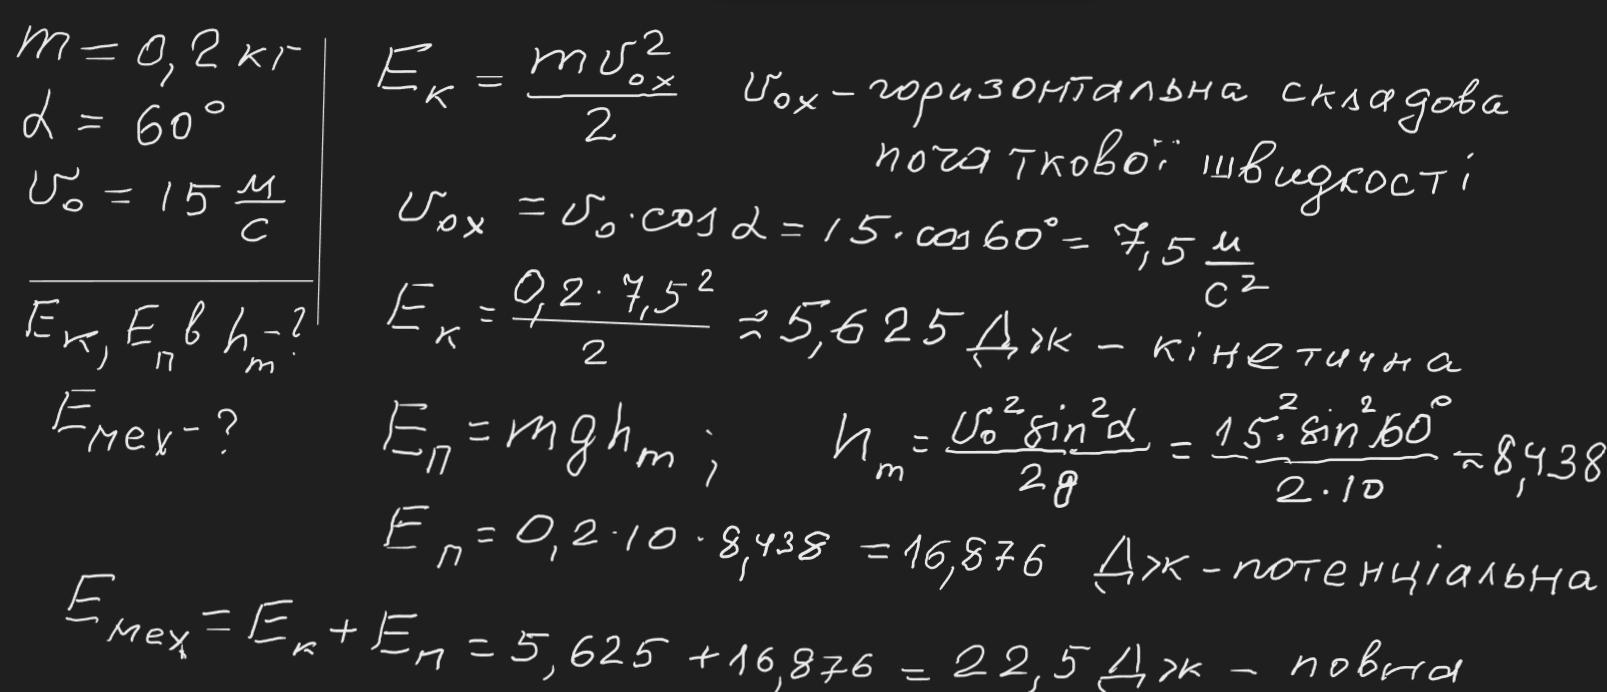 m = 0,2 кг
α = 60°
υ₀ = 15 м/с
Eк, Eп в hm - ?
Eмех - ?
Eк = mυ₀ₓ²/2 υ₀ₓ - горизонтальна складова
початкової швидкості
υ₀ₓ = υ₀·cosα = 15·cos60° = 7,5 м/с²
Eк = 0,2·7,5²/2 ≈ 5,625 Дж - кінетична
Eп = mghm ; hm = υ₀²sin²α/2g = 15²·sin²60°/2·10 ≈ 8,438
Eп = 0,2·10·8,438 = 16,876 Дж - потенціальна
Eмех = Eк + Eп = 5,625 + 16,876 = 22,5 Дж - повна